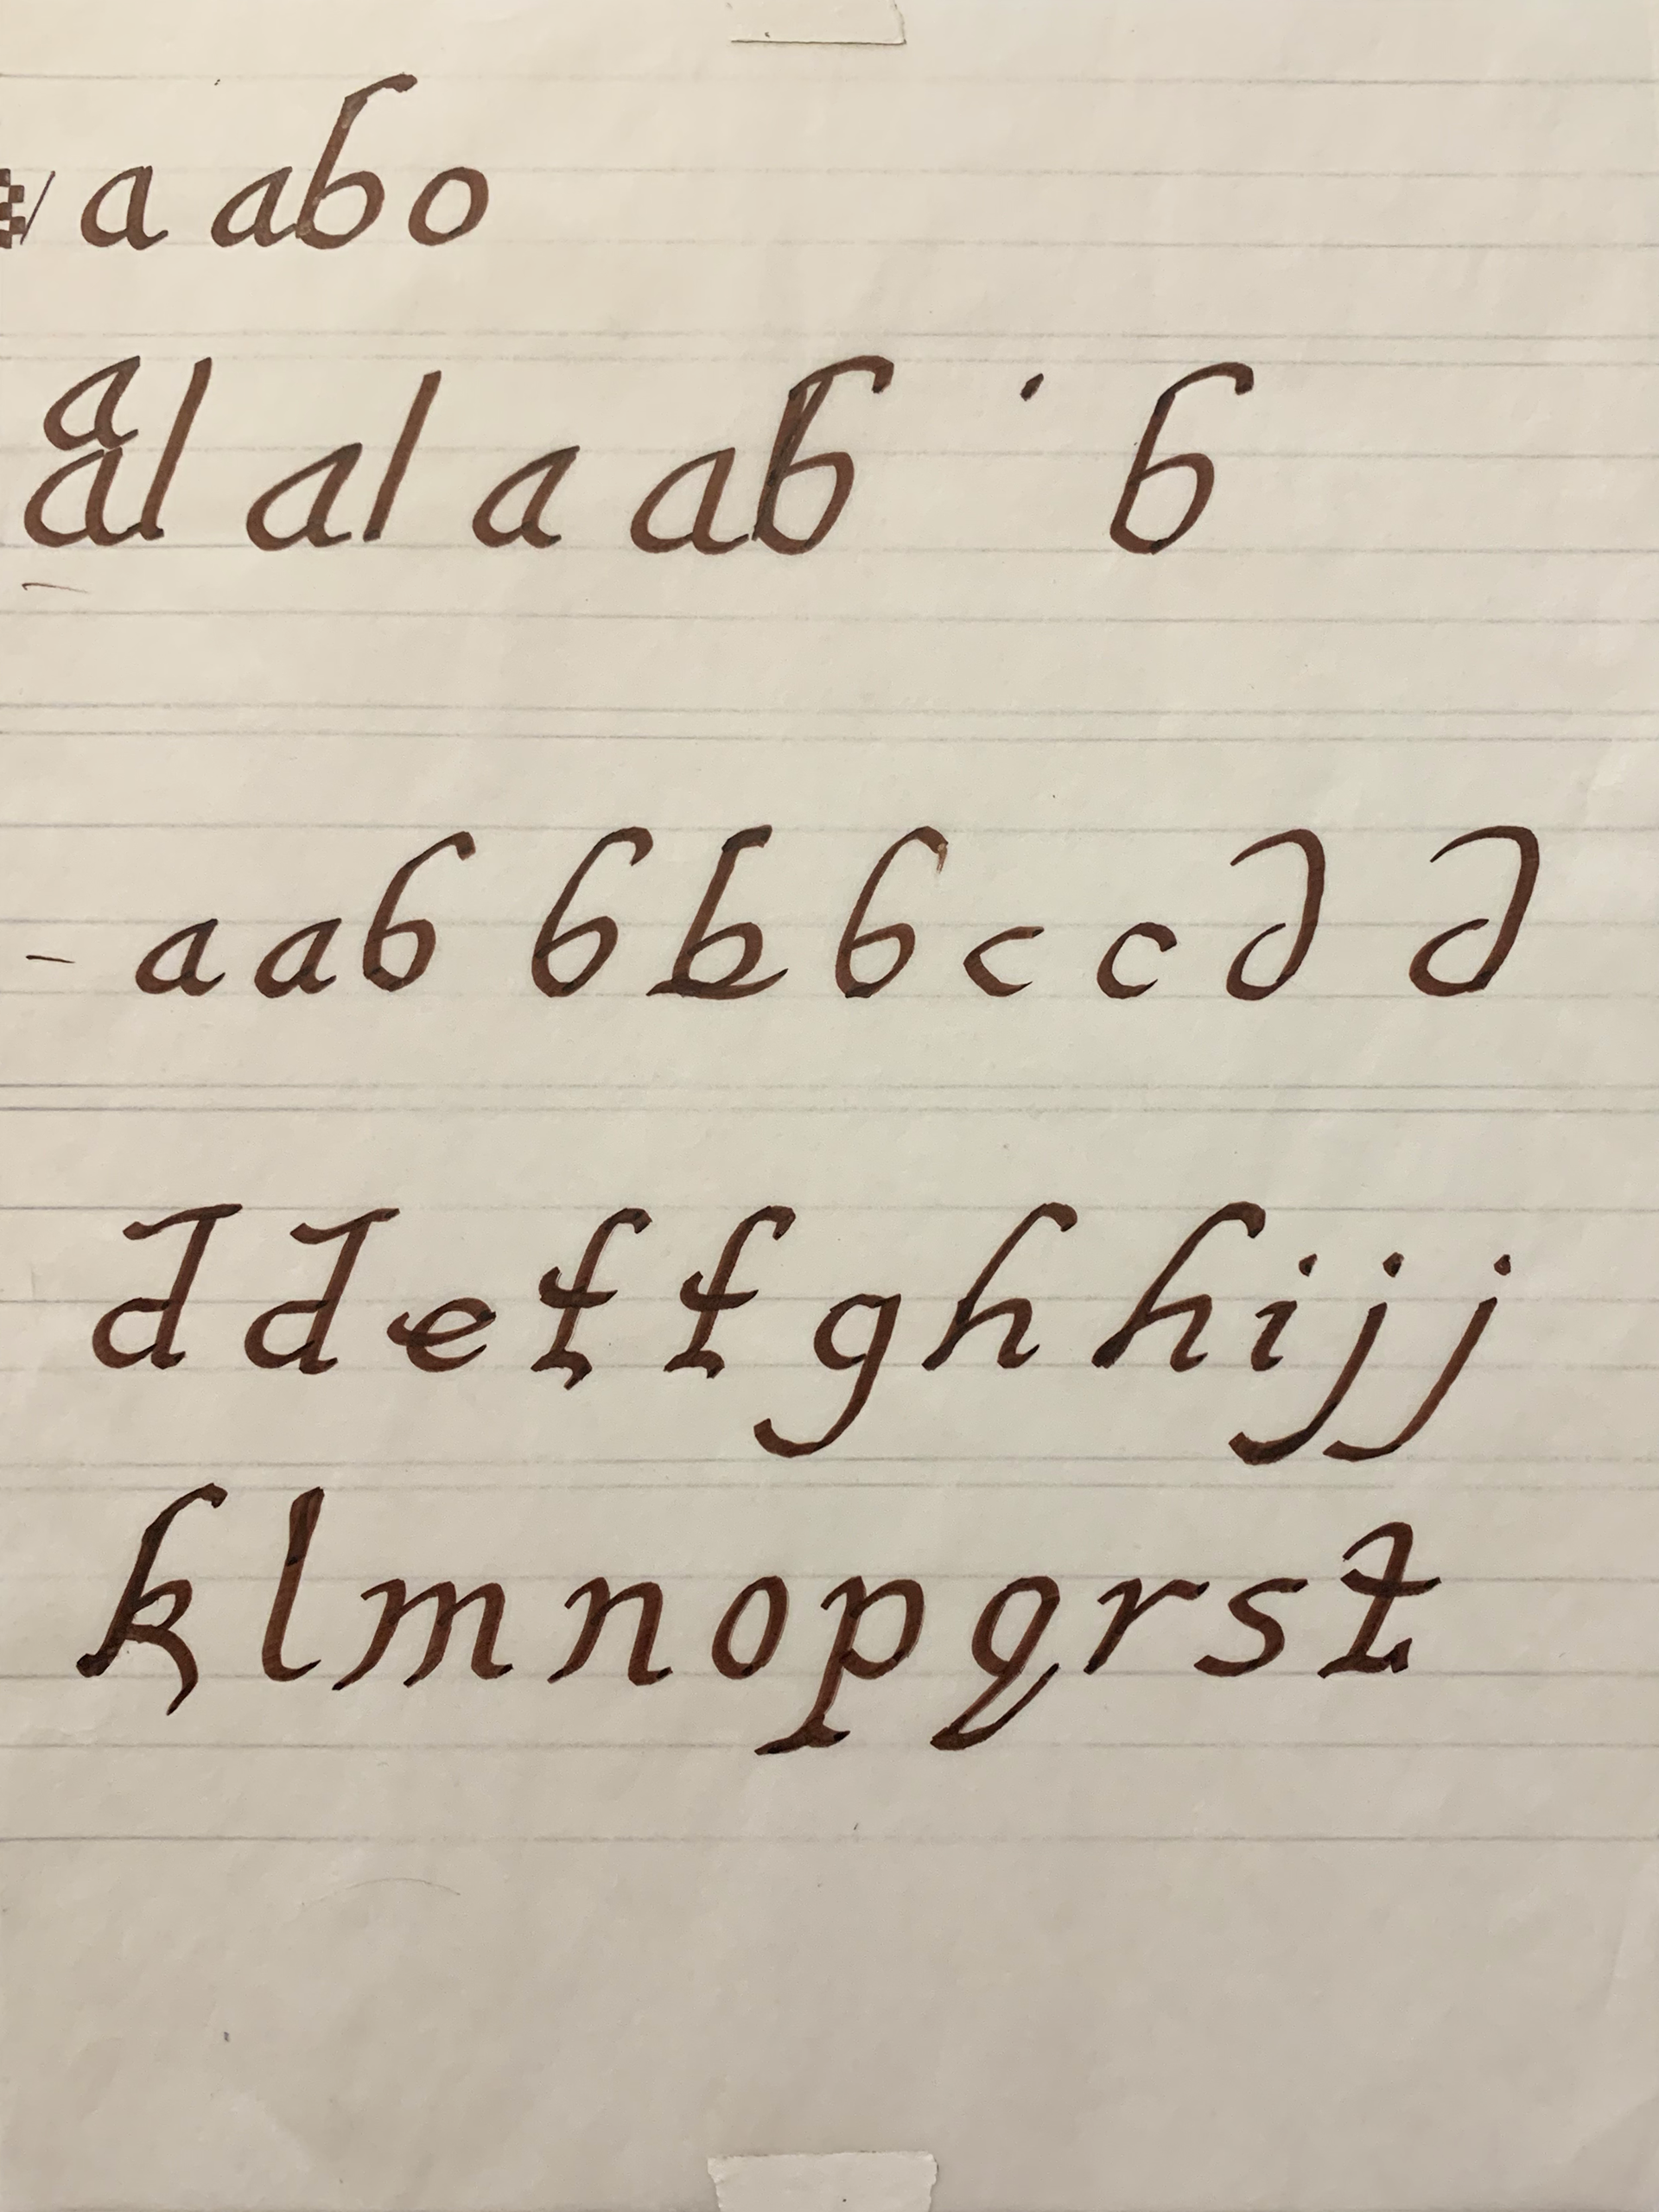 a abo
a
al al a ab b
a a b b b b c c d d
d d e f f g h h i j j
k l m n o p q r s t